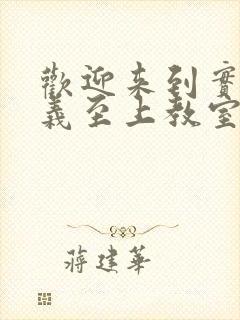 歡迎来到實
義至上教室
蔣建華